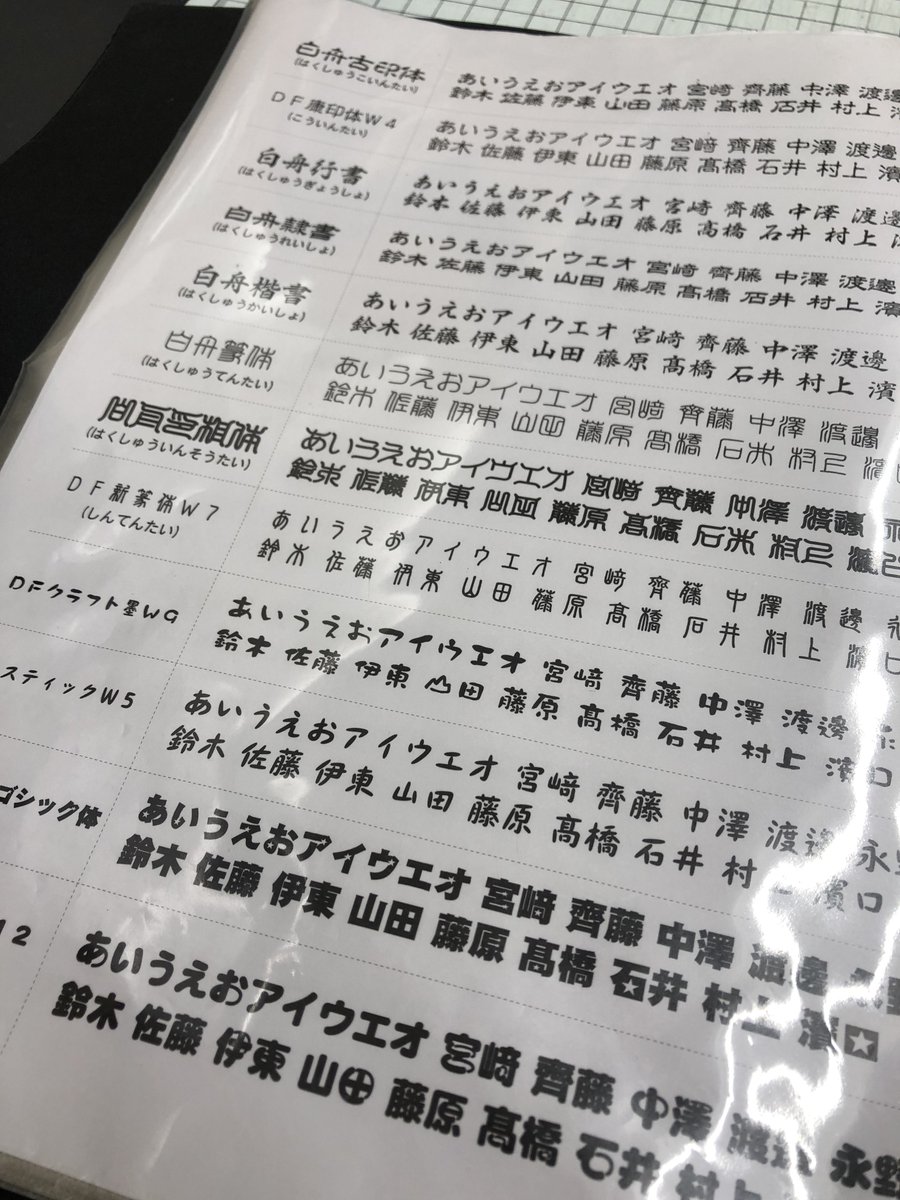 白舟古印体
(はくしゅうこいんたい)
あいうえおアイウエオ 宮﨑 齊藤 中澤 渡邊
鈴木 佐藤 伊東 山田 藤原 髙橋 石井 村上
DF康印体W4
(こういんたい)
あいうえおアイウエオ 宮﨑 齊藤 中澤 渡邊
鈴木 佐藤 伊東 山田 藤原 髙橋 石井 村上 濱
白舟行書
(はくしゅうぎょうしょ)
あいうえおアイウエオ 宮﨑 齊藤 中澤 渡邊
鈴木 佐藤 伊東 山田 藤原 髙橋 石井 村上
白舟隷書
(はくしゅうれいしょ)
あいうえおアイウエオ 宮﨑 齊藤 中澤 渡邊
鈴木 佐藤 伊東 山田 藤原 髙橋 石井 村上 濱
白舟楷書
(はくしゅうかいしょ)
あいうえおアイウエオ 宮﨑 齊藤 中澤 渡邊
鈴木 佐藤 伊東 山田 藤原 髙橋 石井 村上 濱
白舟篆体
(はくしゅうてんたい)
あいうえおアイウエオ 宮﨑 齊藤 中澤 渡邊
鈴木 佐藤 伊東 山田 藤原 髙橋 石井 村上 濱口
白舟印相体
(はくしゅういんそうたい)
あいうえおアイウエオ 宮﨑 齊藤 中澤 渡邊 永
鈴木 佐藤 伊東 山田 藤原 髙橋 石井 村上 濱口
DF新篆体W7
(しんてんたい)
あいうえおアイウエオ 宮﨑 齊藤 中澤 渡邊 永
鈴木 佐藤 伊東 山田 藤原 髙橋 石井 村上 濱口
DFクラフト墨W9
あいうえおアイウエオ 宮﨑 齊藤 中澤 渡邊 永
鈴木 佐藤 伊東 山田 藤原 髙橋 石井 村上 濱口
スティックW5
あいうえおアイウエオ 宮﨑 齊藤 中澤 渡邊 永野
鈴木 佐藤 伊東 山田 藤原 髙橋 石井 村 濱口
ゴシック体
あいうえおアイウエオ 宮﨑 齊藤 中澤 渡邊 野
鈴木 佐藤 伊東 山田 藤原 髙橋 石井 村上 濱
12
あいうえおアイウエオ 宮﨑 齊藤 中澤 渡邊 永野
鈴木 佐藤 伊東 山田 藤原 髙橋 石井 村上